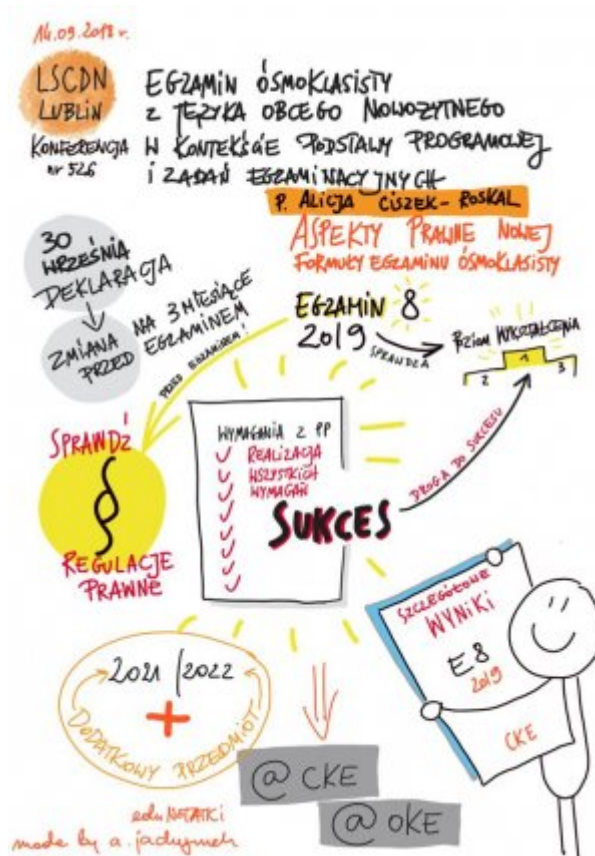 14.09.2018 r.
LSCDN
LUBLIN
KONFERENCJA
nr 526
EGZAMIN ÓSMOKLASISTY
Z JĘZYKA OBCEGO NOWOŻYTNEGO
W KONTEKŚCIE PODSTAWY PROGRAMOWEJ
I ZADAŃ EGZAMINACYJNYCH
P. ALICJA CISZEK-ROSKAL
ASPEKTY PRAWNE NOWEJ
FORMUŁY EGZAMINU ÓSMOKLASISTY
30
WRZEŚNIA
DEKLARACJA
ZMIANA NA 3 MIESIĄCE
PRZED EGZAMINEM
EGZAMIN 8
2019
SPRAWDZA
POZIOM WYKSZTAŁCENIA
1
2
3
PRZED EGZAMINEM!
SPRAWDŹ
§
REGULACJE
PRAWNE
WYMAGANIA Z PP
REALIZACJA
WSZYSTKICH
WYMAGAŃ
SUKCES
DROGA DO SUKCESU
SZCZEGÓŁOWE
WYNIKI
E8
2019
CKE
2021/2022
+
DODATKOWY PRZEDMIOT
@ CKE
@ OKE
eduNOTATKI
made by a.